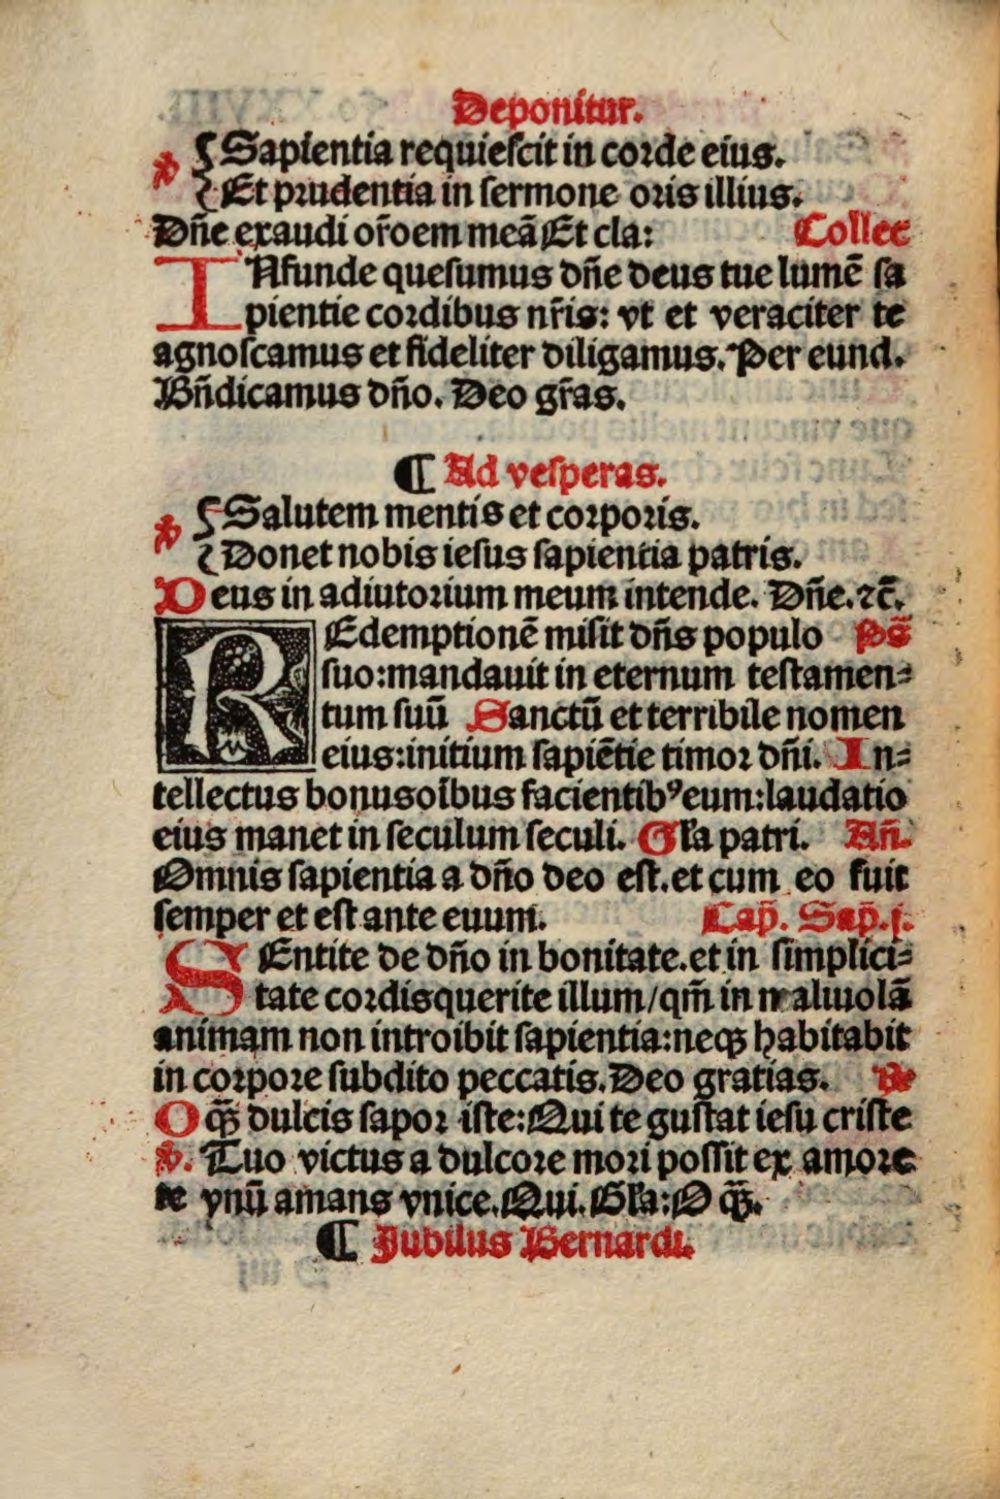 Deponitur.
℣ Sapientia requieſcit in corde eius.
Et prudentia in ſermone oris illius.
Dn̄e exaudi or̄oem meã Et cla: Collec
INfunde queſumus dn̄e deus tue lumẽ ſa
pientie cordibus nr̄is: vt et veraciter te
agnoſcamus et fideliter diligamus. Per eund.
Bn̄dicamus dn̄o. Deo gr̄as.
¶ Ad veſperas.
℣ Salutem mentis et corporis.
Donet nobis ieſus ſapientia patris.
Deus in adiutorium meum intende. Dn̄e. ⁊c̄.
REdemptionẽ miſit dn̄s populo Ps̄
ſuo: mandauit in eternum teſtamen⸗
tum ſuū Sanctū et terribile nomen
eius: initium ſapiẽtie timor dn̄i. In⸗
tellectus bonus oībus facientibꝰ eum: laudatio
eius manet in ſeculum ſeculi. Gl̄a patri. An̄.
Omnis ſapientia a dn̄o deo eſt. et cum eo fuit
ſemper et eſt ante euum. Cap̄. Sap̄. j.
SEntite de dn̄o in bonitate. et in ſimplici⸗
tate cordis querite illum / qm̄ in maliuolã
animam non introibit ſapientia: neqꝫ habitabit
in corpore ſubdito peccatis. Deo gratias. ℞
O qꝫ̄ dulcis ſapor iſte: Qui te guſtat ieſu criſte
℣. Tuo victus a dulcore mori poſſit ex amore
te vnū amans vnice. Qui. Gl̄a: O qꝫ̄.
¶ Jubilus Bernardi.